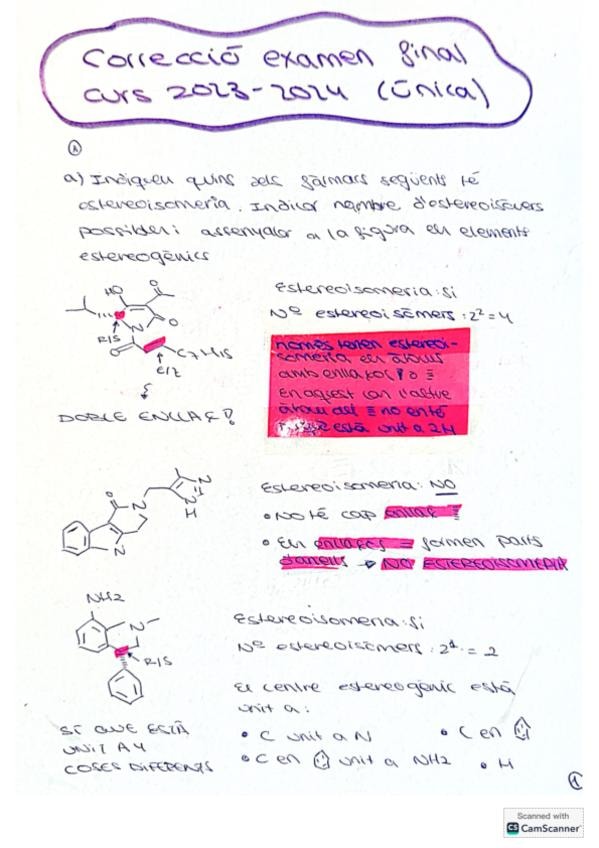 Correcció examen final
curs 2023-2024 (única)
1
a) Indiqueu quins dels fàrmacs següents té
estereoisomeria. Indicar nombre d'estereoisòmers
possibles i assenyalar a la figura els elements
estereogènics
HO
O
O
N
R/S
O
C7H15
E/Z
DOBLE ENLLAÇ?
Estereoisomeria: Sí
Nº estereoisòmers: 2²=4
només tenen estereoi-
someria els àtoms
amb enllaços
En aquest cas l'altre
àtom del = no en té
està unit a 2H
O
N
N
N
H
N
Estereoisomeria: NO
• NO té cap enllaç
• Els enllaços = formen part
d'anells → NO ESTEREOISOMERIA
NH2
N
R/S
SÍ QUE ESTÀ
UNIT A 4
COSES DIFERENTS
Estereoisomeria: Sí
Nº estereoisòmers: 2¹ = 2
El centre estereogènic està
unit a:
• C unit a N
• C en
• C en unit a NH2
• H
1
Scanned with
CS CamScanner